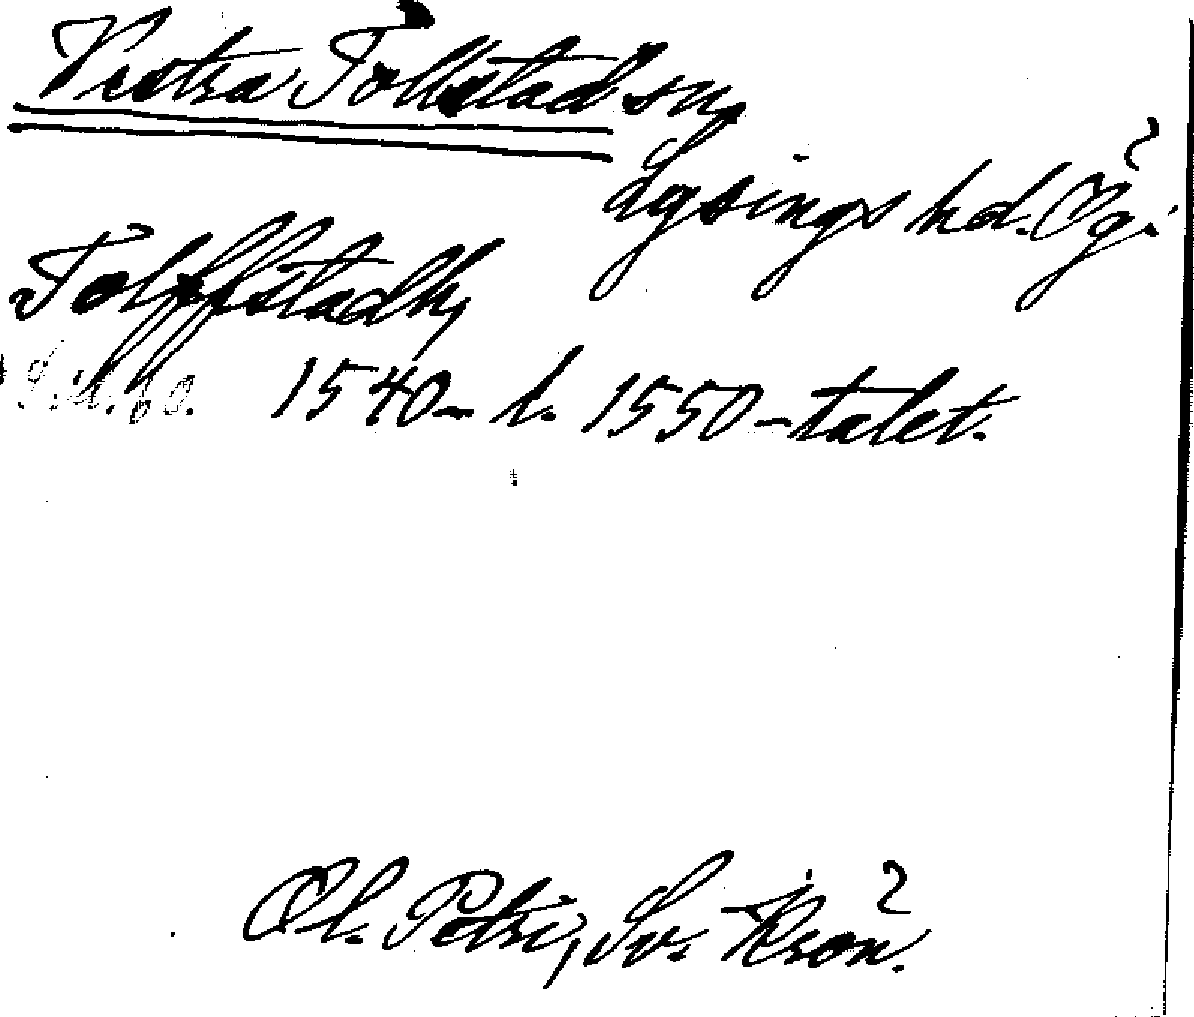 Västra Tollstad sn,
Lysings hd. Ög.
Tolffstadh,
S. 1.60. 1540- l. 1550-talet.
Ol. Petri, Sv. Krön.